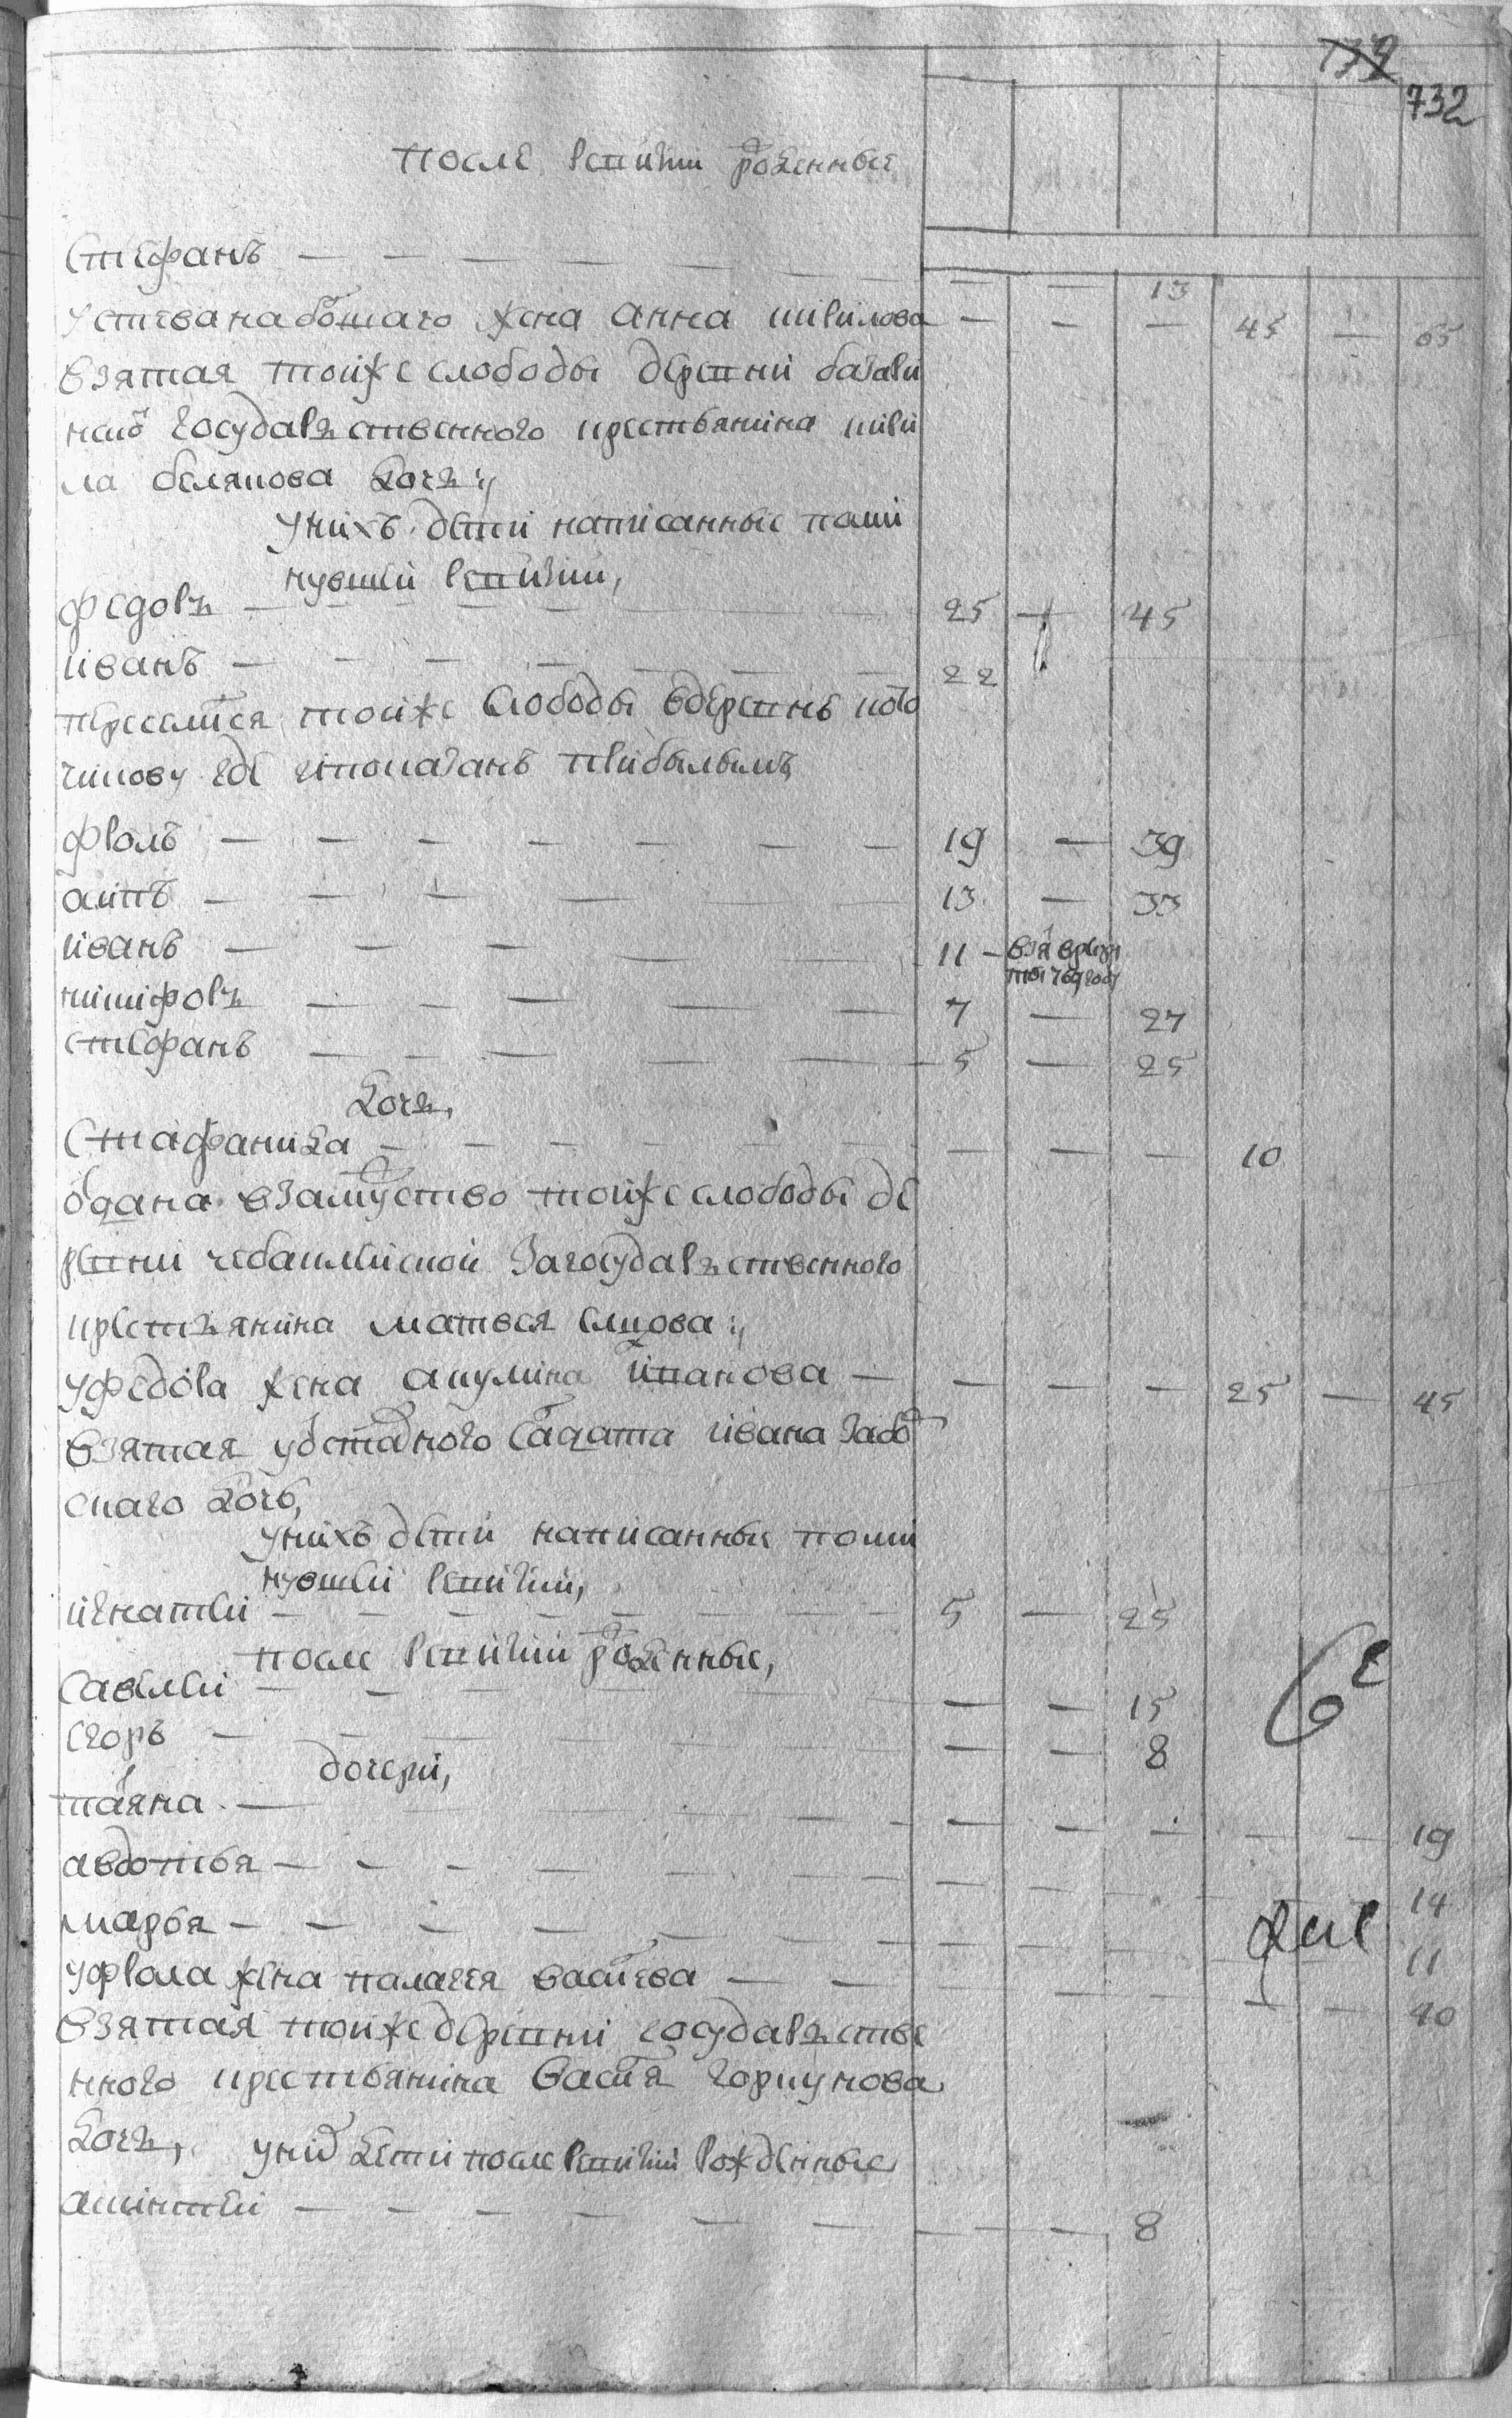 732
после ревизии рожденные
Стефанъ — — 13
у степана большаго жена анна кирилова — — — 45 — 65
взятая тойже слободы деревни
ской государственного крестьянина кири
ла белякова дочь
у нихъ дети написанные поми
нувшей ревизии,
федоръ — 25 — 45
иванъ — 22
переселился тойже слободы в деревнь
чикову где и показанъ прибылымъ
фролъ — 19 — 39
аипъ — 13 — 33
иванъ — 11 — взятъ в рекруты
769 году
никифоръ — 7 — 27
стефанъ — 5 — 25
дочь,
Стафанида — — — — 10
отдана взамужство тойже слободы де
ревни чебаклинской за государственного
крестьянина матвея елцова
у федора жена акулина ипатова — — — — 25 — 45
взятая у отставного салдата ивана забо
скаго дочь,
у нихъ дети написанные поми
нувшей ревизии,
игнатей — 5 — 25
после ревизии рожденные,
Савелей — — — 15
егоръ — — — 8
дочери,
татьяна — — — — — — 19
авдотья — — — — — — 14
марья — — — — — — 11
у фрола жена палагея васильева — — — 40
взятая тойже деревни государстве
нного крестьянина василья горшунова
дочь, у них дети после ревизии рожденные
акинтей — — — 8